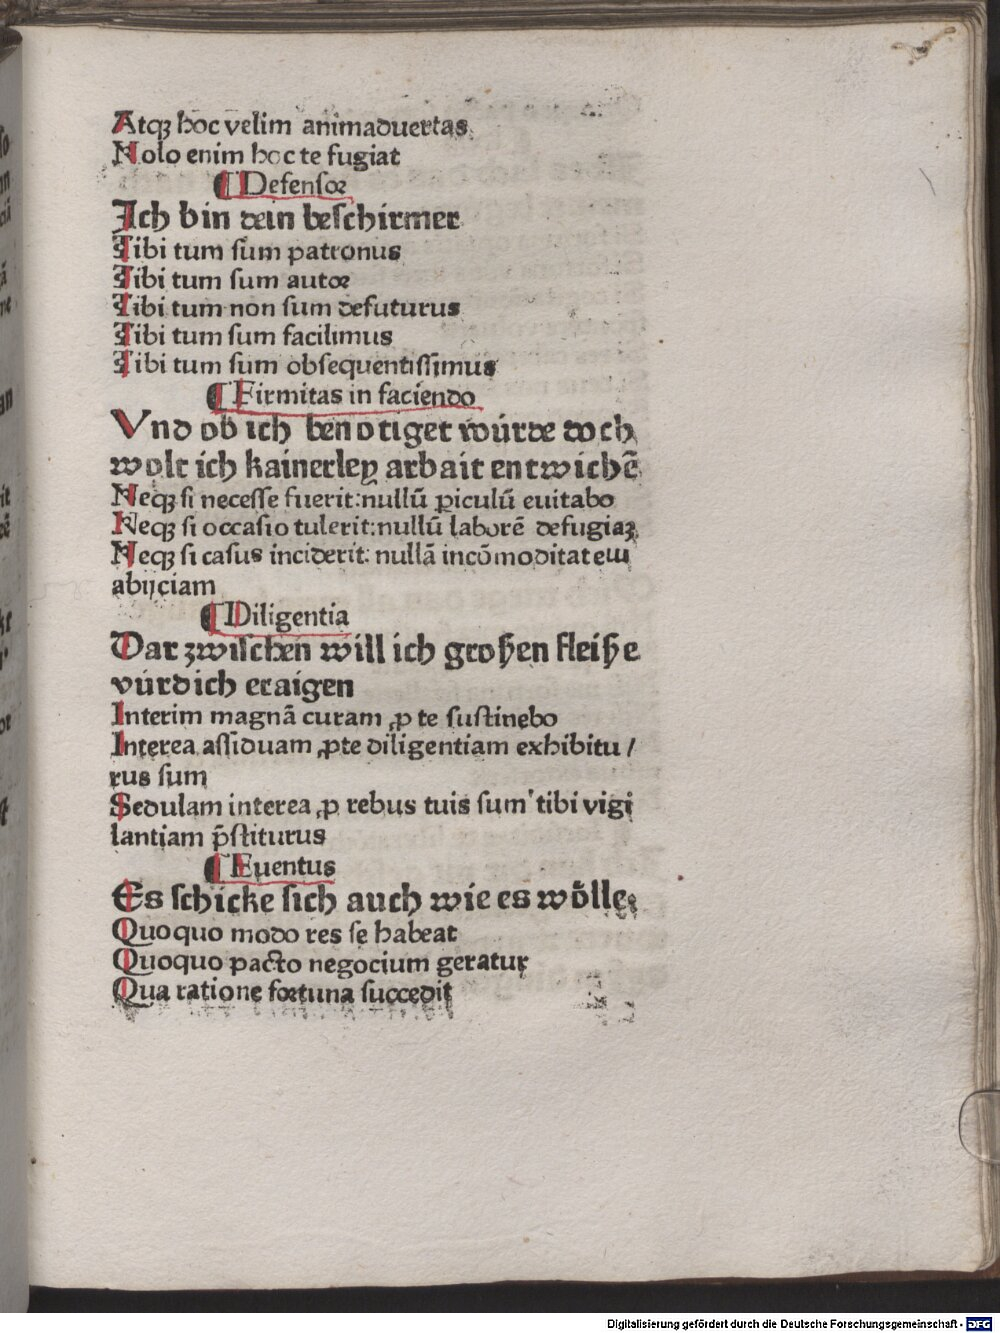 Atqꝫ hoc velim animaduertas
Nolo enim hoc te fugiat
¶ Defensor
Ich bin dein beschirmer
Tibi tum sum patronus
Tibi tum sum autor
Tibi tum non sum defuturus
Tibi tum sum facilimus
Tibi tum sum obsequentissimus
¶ Firmitas in faciendo
Vnd ob ich benotiget würde doch
wolt ich kainerley arbait entwichē
Neqꝫ si necesse fuerit: nullū ꝑiculū euitabo
Neqꝫ si occasio tulerit: nullū laborē defugiaꝫ
Neqꝫ si casus inciderit: nullā incōmoditatem
abijciam
¶ Diligentia
Dar zwischen will ich großen fleiße
vürdich eraigen
Interim magnā curam ꝓ te sustinebo
Interea assiduam ꝓte diligentiam exhibitu /
rus sum
Sedulam interea ꝓ rebus tuis sum tibi vigi
lantiam p̄stiturus
¶ Euentus
Es schicke sich auch wie es wölle
Quoquo modo res se habeat
Quoquo pacto negocium geratur
Qua ratione fortuna succedit
Digitalisierung gefördert durch die Deutsche Forschungsgemeinschaft - DFG